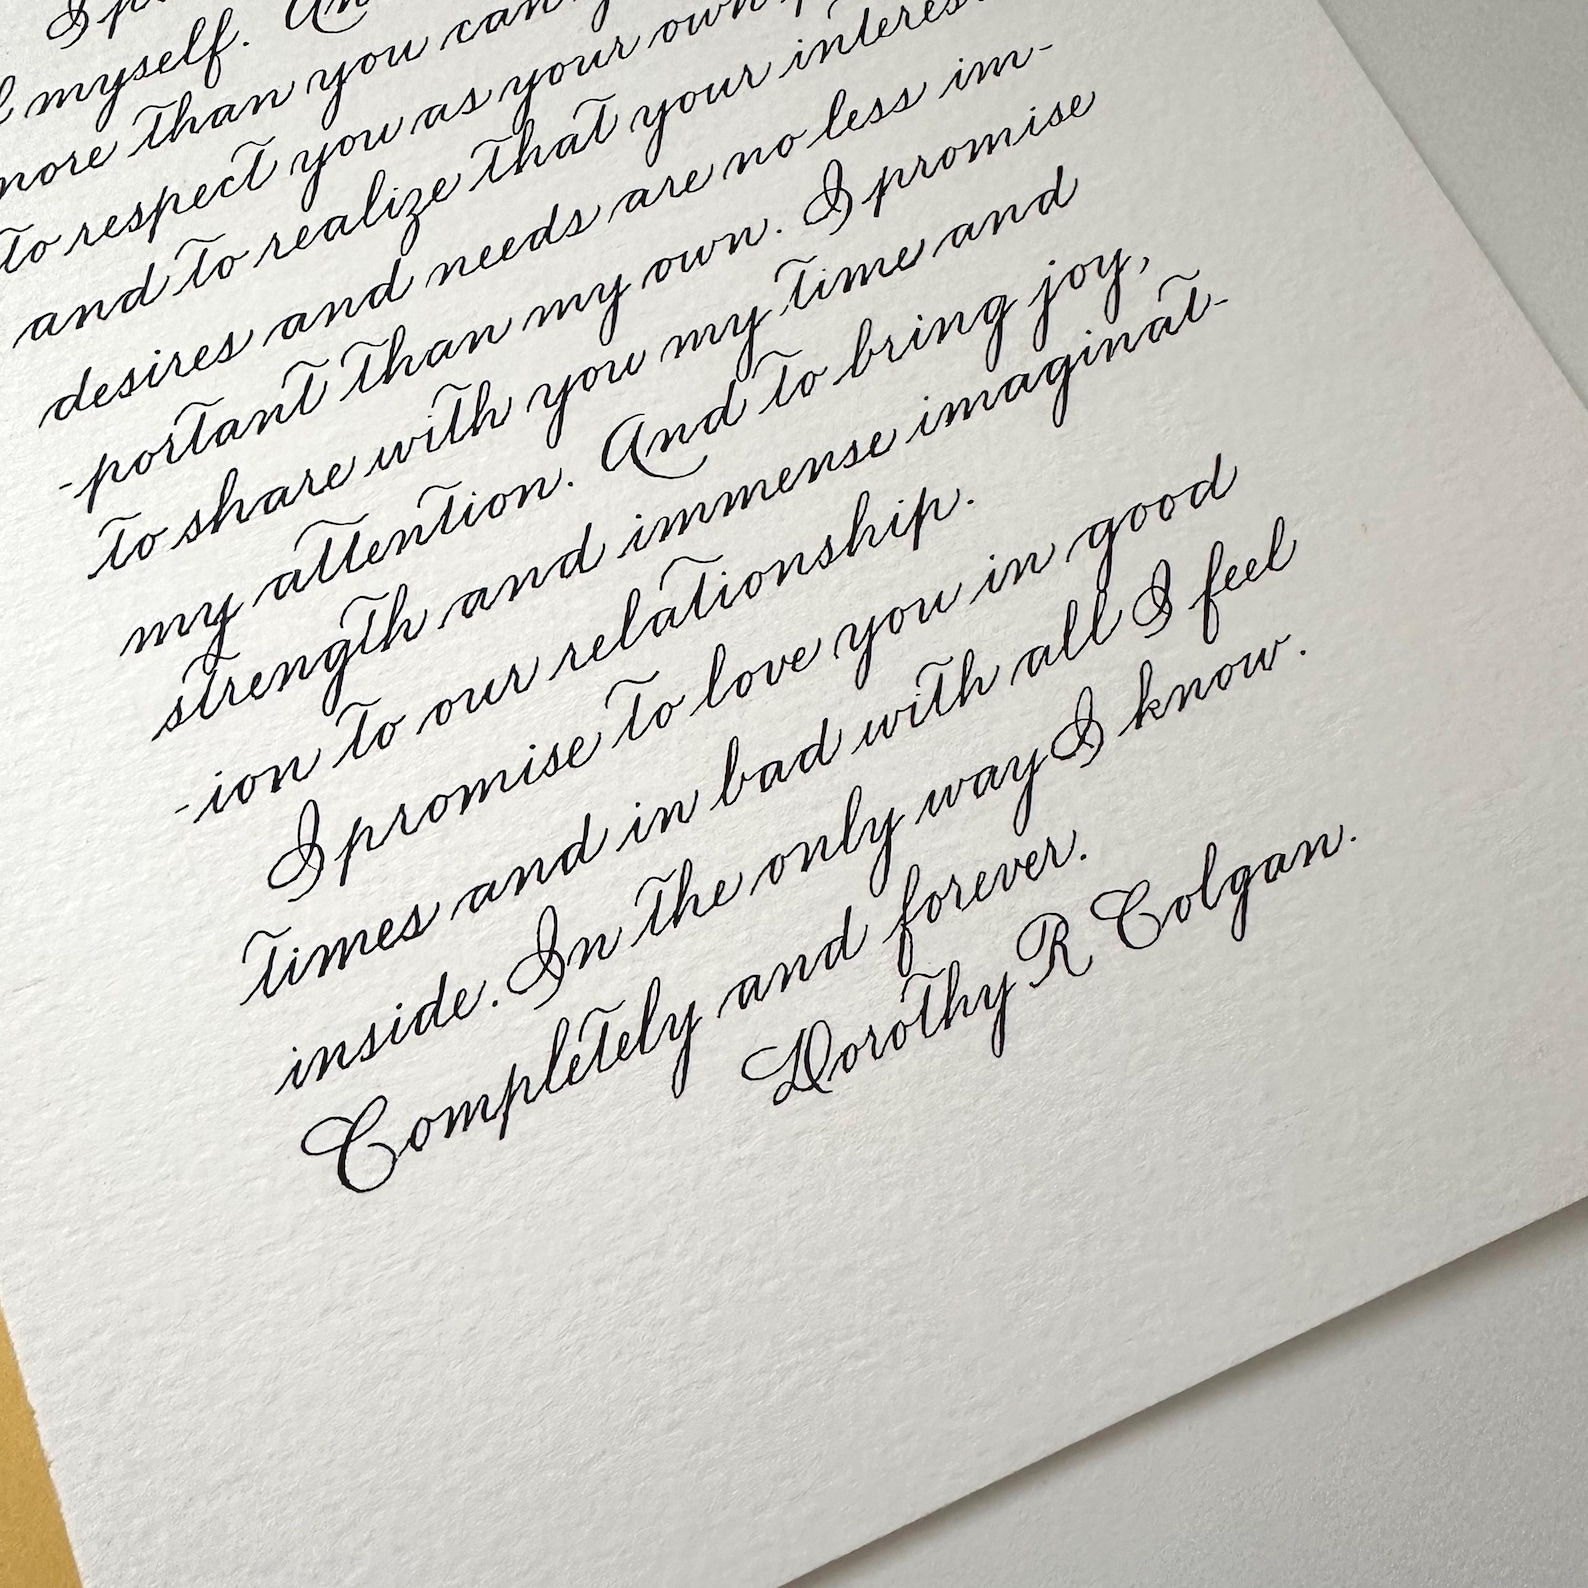 myself.
more than you can
to respect you as your own
and to realize that your interes
desires and needs are no less im-
-portant than my own. I promise
to share with you my time and
my attention. And to bring joy,
strength and immense imaginat-
-ion to our relationship.
I promise to love you in good
times and in bad with all I feel
inside. In the only way I know.
Completely and forever.
Dorothy R Colgan.